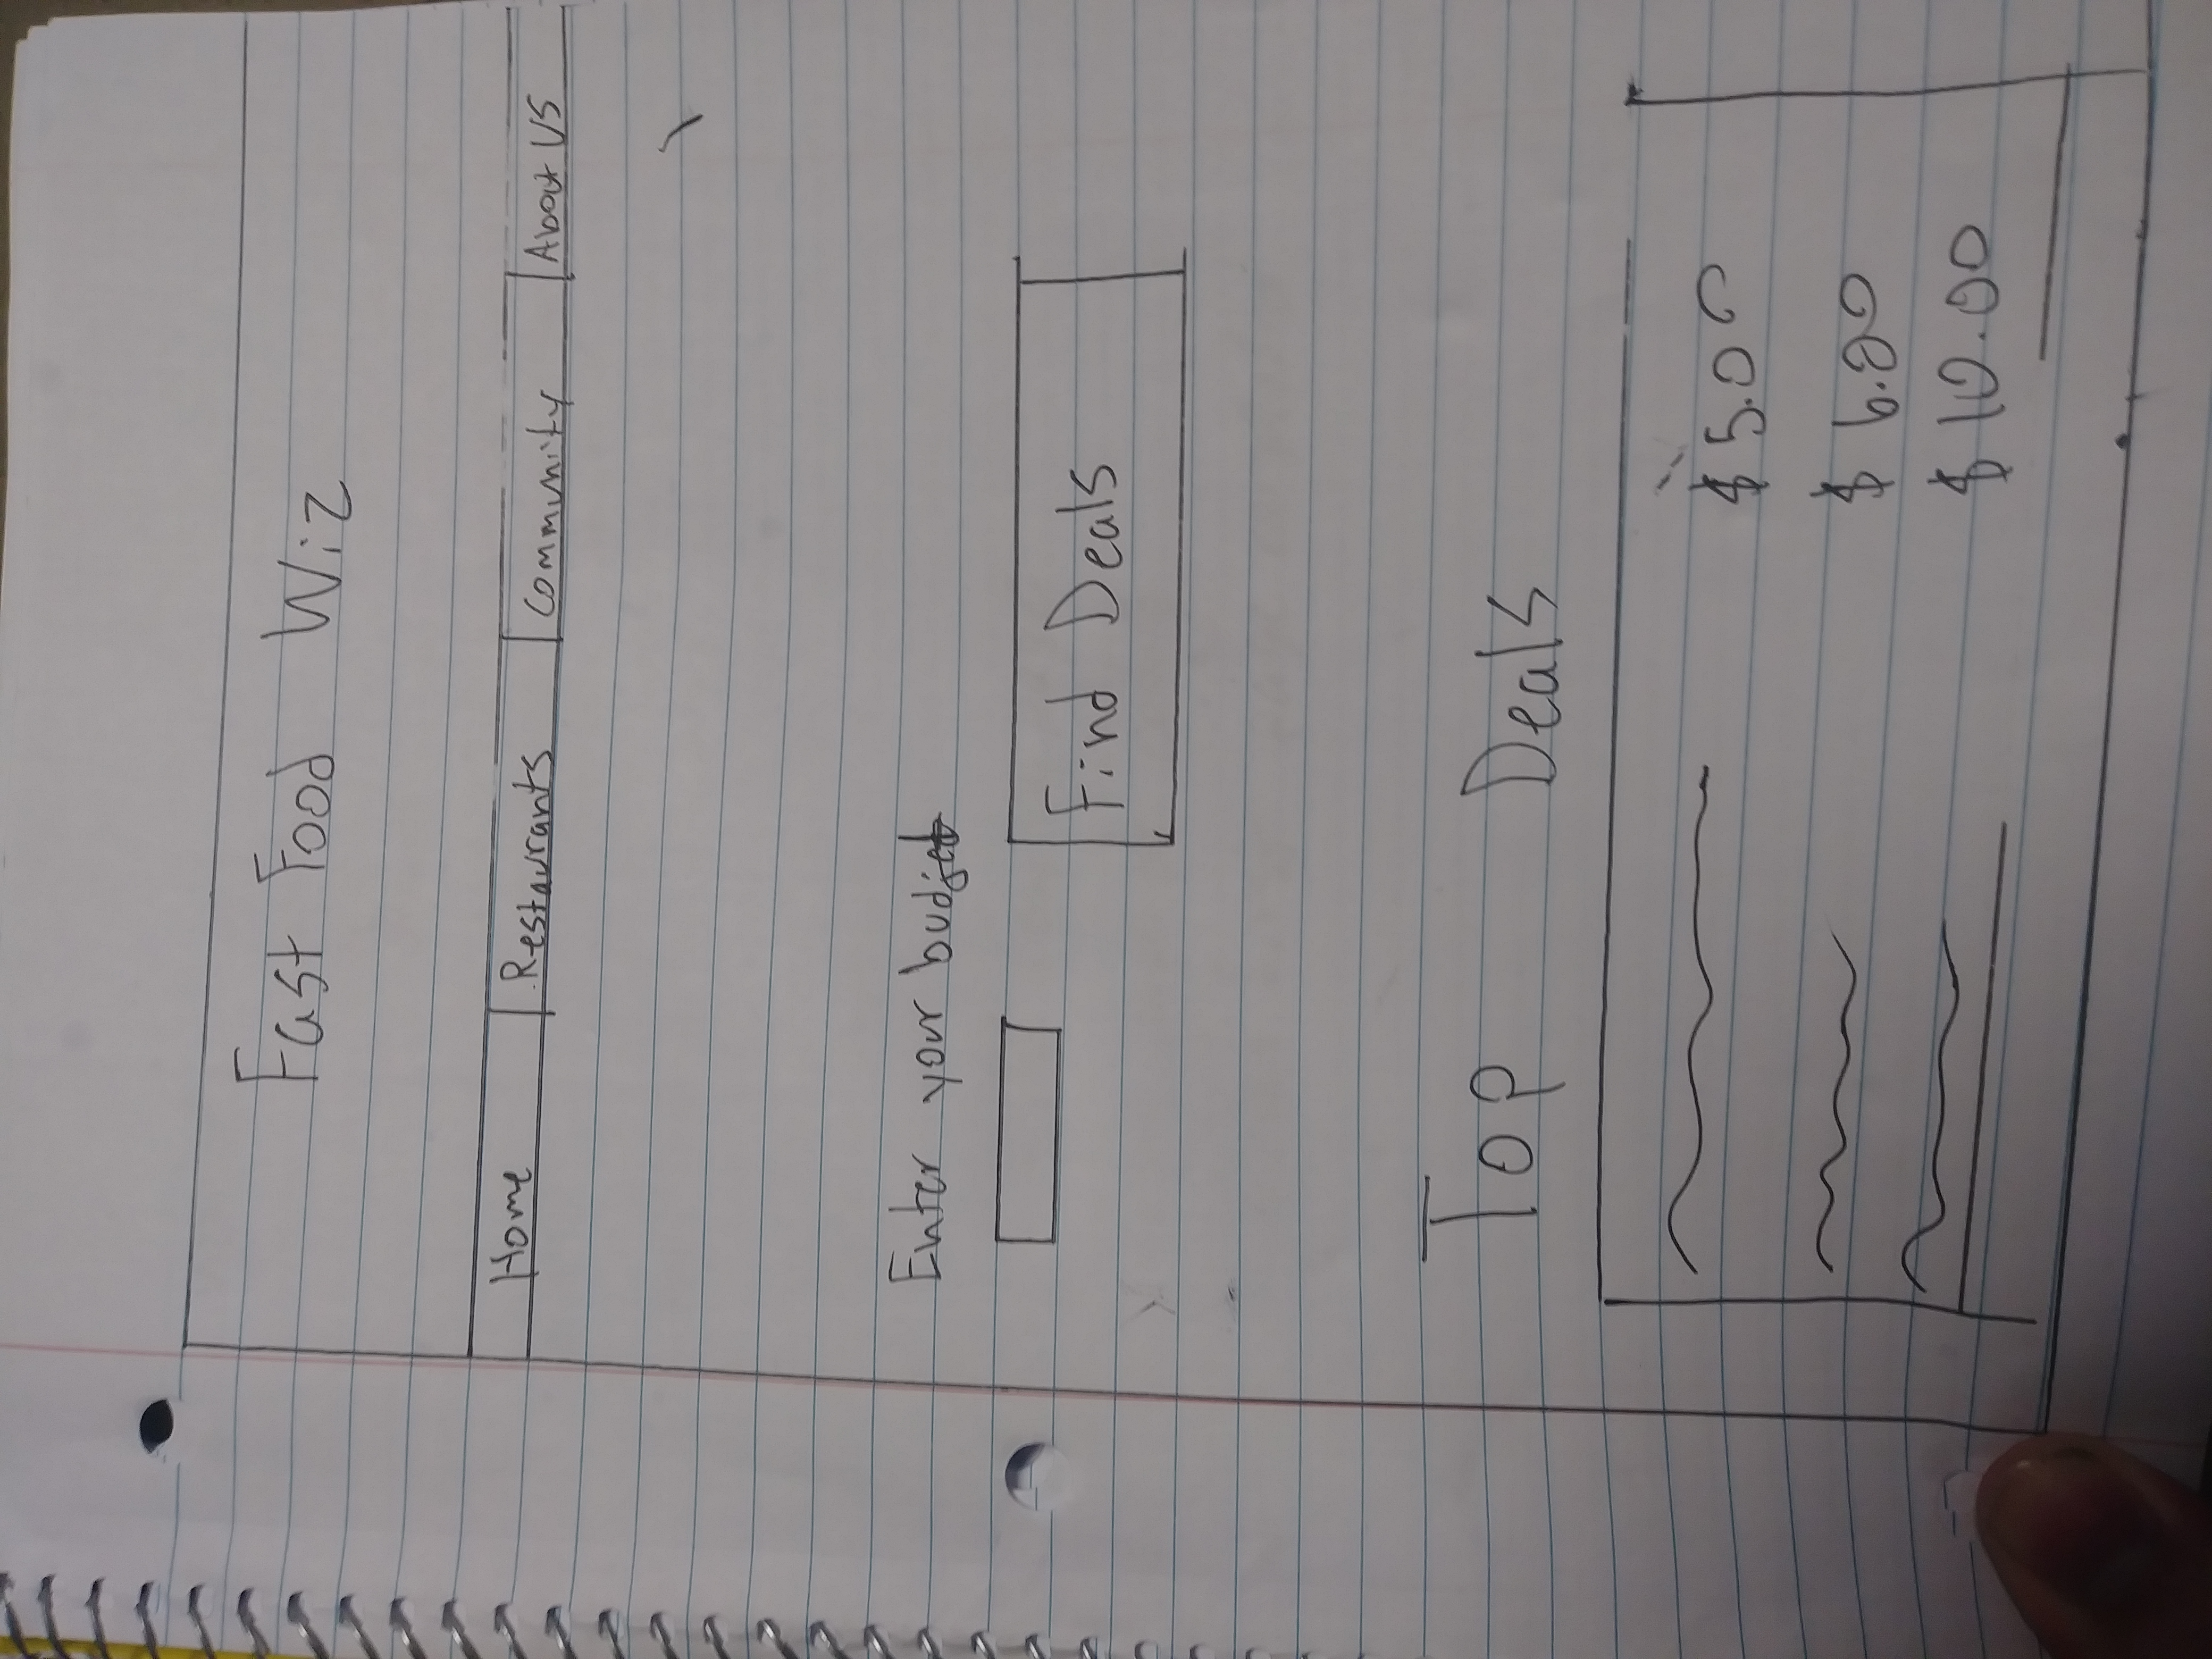 Fast Food Wiz
Home Restaurants Community About US
Enter your budget
Find Deals
Top Deals
$5.00
$6.00
$10.00